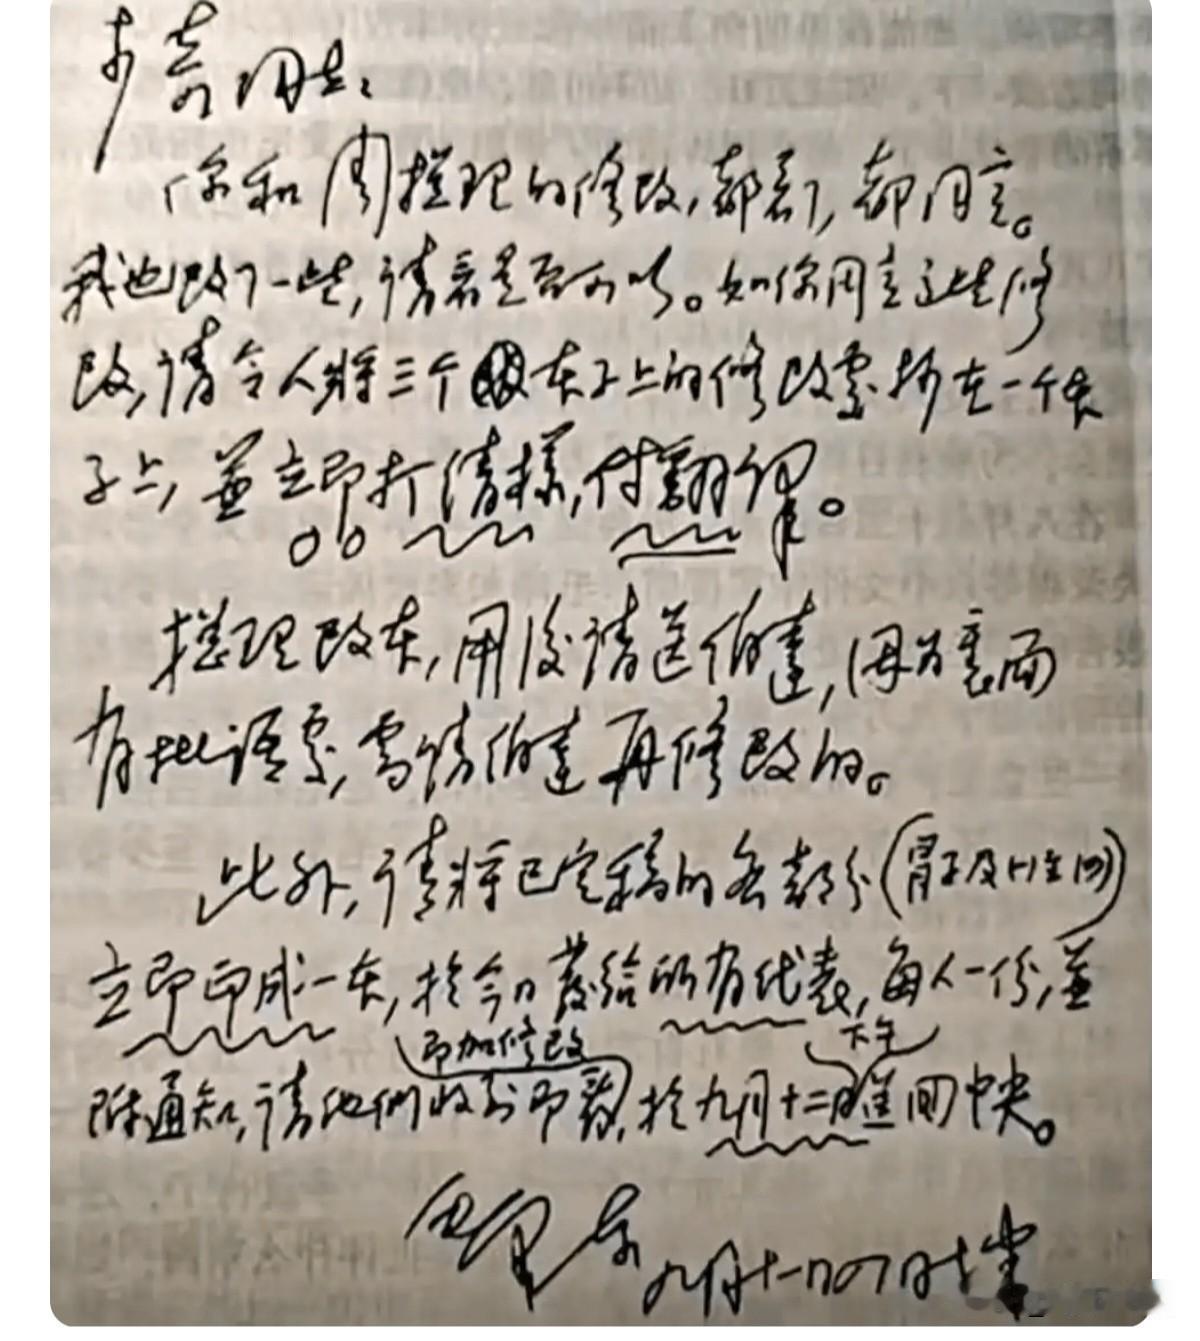 少奇同志：
你和周总理的修改，都看了，都同意。
我也改了一些，请看是否可以。如你同意这些修
改，请令人将三个本子上的修改处抄在一个本
子上，並立即打清样，付翻译。
总理改本，用后请送伯達，因为裏面
有批语处，需请伯達再修改的。
此外，请将已定稿的各部分
立即印成一本，於今日發给所有代表，每人一份，並
即加修改 下午
附通知，请他们收到即看，於九月十二日退回中央。
毛泽东
九月十一日